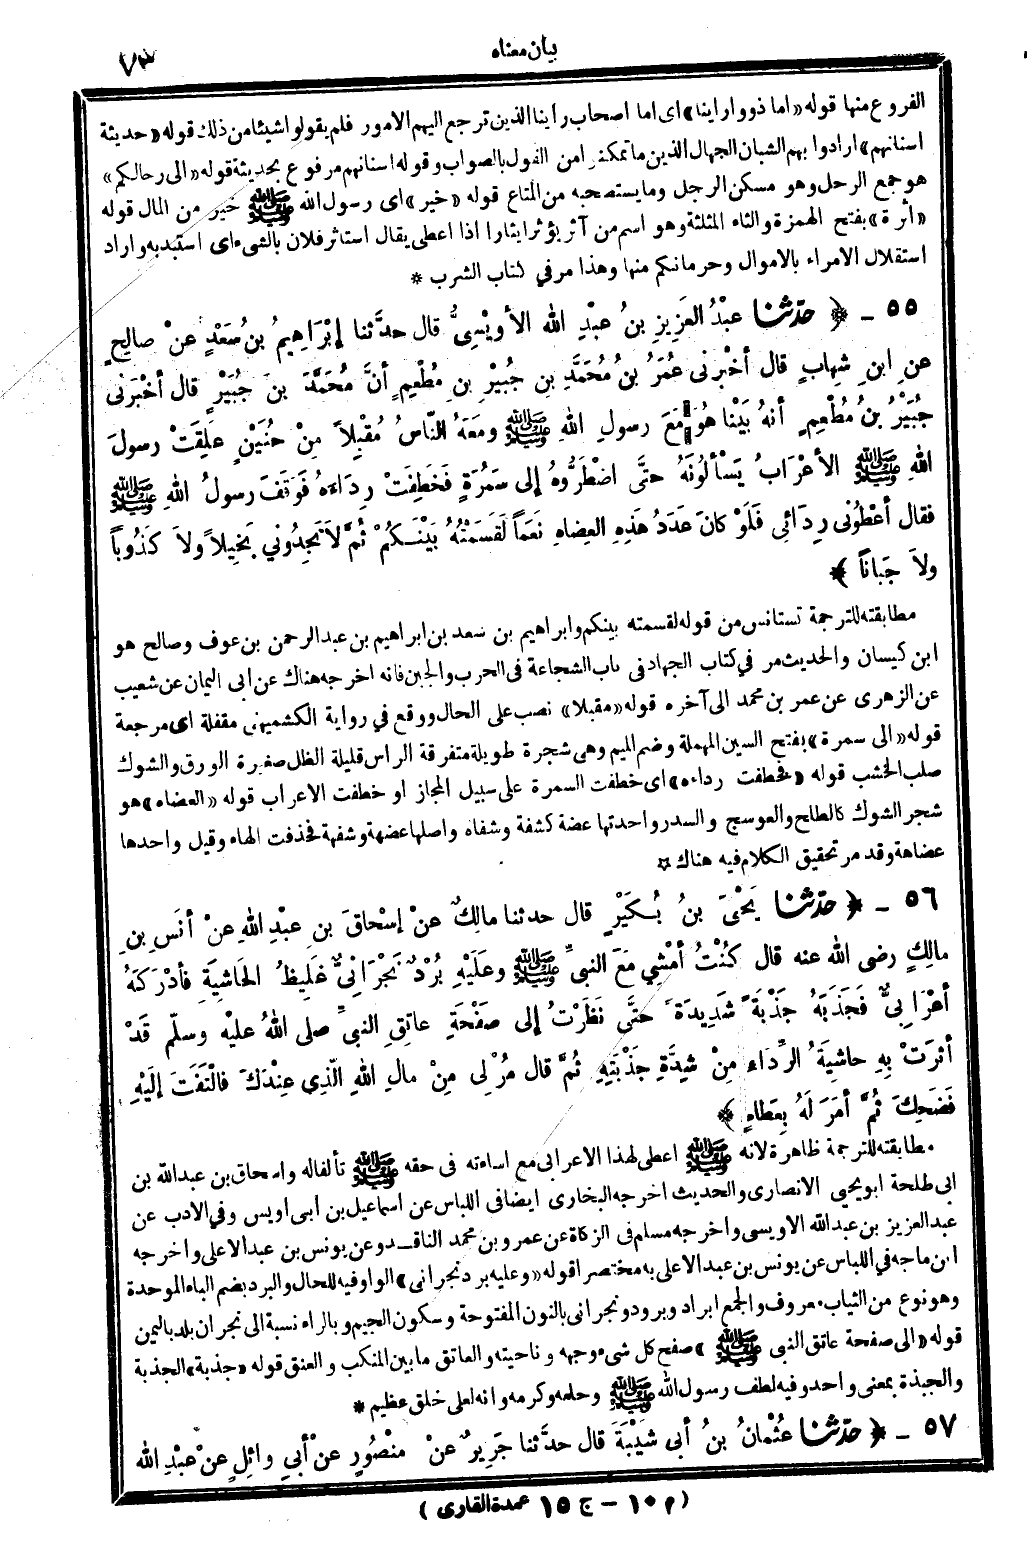 بيان معناه
٧٣
الفروع منها قوله «اما ذووا راينا» اى اما اصحاب راينا الذين ترجع اليهم الامور فلم يقولوا شيئا من ذلك قوله «حديثة
اسنانهم» ارادوا بهم الشبان الجهال الذين ما تمكنوا من القول بالصواب وقوله اسنانهم مرفوع بحديثة قوله «الى رحالكم»
هو جمع الرحل وهو مسكن الرجل وما يستصحبه من المتاع قوله «خير» اى رسول الله ﷺ خير من المال قوله
«أثرة» بفتح الهمزة والثاء المثلثة وهو اسم من آثر يؤثر ايثارا اذا اعطى يقال استاثر فلان بالشىء اى استبد به واراد
استقلال الامراء بالاموال وحرمانكم منها وهذا مر في كتاب الشرب *
٥٥ - ﴿ حدّثنا عبْدُ العَزِيزِ بنُ عبدِ الله الأويْسِىُّ قال حدَّثنا إبْرَاهِيمُ بنُ سَعْدٍ عنْ صالِحٍ
عنِ ابنِ شِهابٍ قال أخْبرَنى عُمَرُ بنُ مُحَمَّدِ بنِ جُبَيْرِ بنِ مُطْعِمٍ أنَّ مُحَمَّدَ بنَ جُبَيْرٍ قال أخْبَرَنى
جُبَيْرُ بنُ مُطْعِمٍ أنهُ بَيْنا هُوَ مَعَ رسولِ اللهِ ﷺ ومَعَهُ النّاسُ مُقْبِلاً مِنْ حُنَيْنٍ عَلِقَتْ رسولَ
اللهِ ﷺ الأعْرَابُ يَسْألُونَهُ حتَّى اضْطَرُّوهُ إلى سَمُرَةٍ فَخَطِفَتْ رِدَاءَهُ فَوَقَفَ رسولُ اللهِ ﷺ
فقال أعْطُونى رِدَائِى فَلَوْ كانَ عَدَدُ هَذِهِ العِضاهِ نَعَماً لَقَسَمْتُهُ بَيْنَكُمْ ثُمَّ لاَ تَجِدُوني بَخِيلاً ولاَ كَذُوباً
ولاَ جَباناً ﴾
مطابقته للترجمة تستانس من قوله لقسمته بينكم وابراهيم بن سعد بن ابراهيم بن عبد الرحمن بن عوف وصالح هو
ابن كيسان والحديث مر في كتاب الجهاد فى باب الشجاعة فى الحرب والجبن فانه اخرجه هناك عن ابى اليمان عن شعيب
عن الزهرى عن عمر بن محمد الى آخره قوله «مقبلا» نصب على الحال ووقع في رواية الكشميهنى مقفلة اى مرجعة
قوله «الى سمرة» بفتح السين المهملة وضم الميم وهى شجرة طويلة متفرقة الراس قليلة الظل صغيرة الورق والشوك
صلب الخشب قوله «فخطفت رداءه» اى خطفت السمرة على سبيل المجاز او خطفت الاعراب قوله «العضاه» هو
شجر الشوك كالطلح والعوسج والسدر واحدتها عضة كشفة وشفاه واصلها عضهة وشفهة فحذفت الهاء وقيل واحدها
عضاهة وقد مر تحقيق الكلام فيه هناك ¤
٥٦ - ﴿ حدّثنا يَحْيَى بنُ بُكَيْرٍ قال حدثنا مالِكٌ عنْ إسْحاقَ بنِ عبْدِ اللهِ عنْ أنَسِ بنِ
مالِكٍ رضى الله عنه قال كُنْتُ أمْشِي مَعَ النبىِّ ﷺ وعَلَيْهِ بُرْدٌ نَجْرَانِىٌّ غَلِيظُ الحَاشِيَةِ فأدْرَكَهُ
أعْرَابِىٌّ فَجَذَبَهُ جَذْبَةً شَدِيدَةً حتَّى نَظَرْتُ إلى صَفْحَةِ عاتِقِ النبىِّ صلى اللهُ عليْه وسلّم قَدْ
أثرَتْ بِهِ حاشِيَةُ الرِّدَاءِ مِنْ شِدَّةِ جَذْبَتِهِ ثُمَّ قال مُرْ لِى مِنْ مالِ اللهِ الّذِى عِنْدَكَ فالْتَفَتَ إلَيْهِ
فَضَحِكَ ثُمَّ أمَرَ لَهُ بِعَطاءٍ ﴾
مطابقته للترجمة ظاهرة لانه ﷺ اعطى لهذا الاعرابى مع اساءته فى حقه ﷺ تألفا له واسحاق بن عبد الله بن
ابى طلحة ابو يحيى الانصارى والحديث اخرجه البخارى ايضا فى اللباس عن اسماعيل بن أبى اويس وفي الادب عن
عبد العزيز بن عبد الله الاويسى واخرجه مسلم فى الزكاة عن عمرو بن محمد الناقد وعن يونس بن عبد الاعلى واخرجه
ابن ماجه في اللباس عن يونس بن عبد الاعلى به مختصرا قوله «وعليه برد نجرانى» الواو فيه للحال والبرد بضم الباء الموحدة
وهو نوع من الثياب معروف والجمع ابراد وبرود ونجرانى بالنون المفتوحة وسكون الجيم وبالراء نسبة الى نجران بلد باليمن
قوله «الى صفحة عاتق النبى ﷺ» صفح كل شىء وجهه وناحيته والعاتق ما بين المنكب والعنق قوله «جذبة» الجذبة
والجبذة بمعنى واحد وفيه لطف رسول الله ﷺ وحلمه وكرمه وانه لعلى خلق عظيم *
٥٧ - ﴿ حدّثنا عُثْمانُ بنُ أبى شَيْبَةَ قال حدَّثنا جَرِيرٌ عنْ مَنْصُورٍ عنْ أبى وائِلٍ عنْ عبْدِ الله
(م ١٠ - ج ١٥ عمدة القارى)